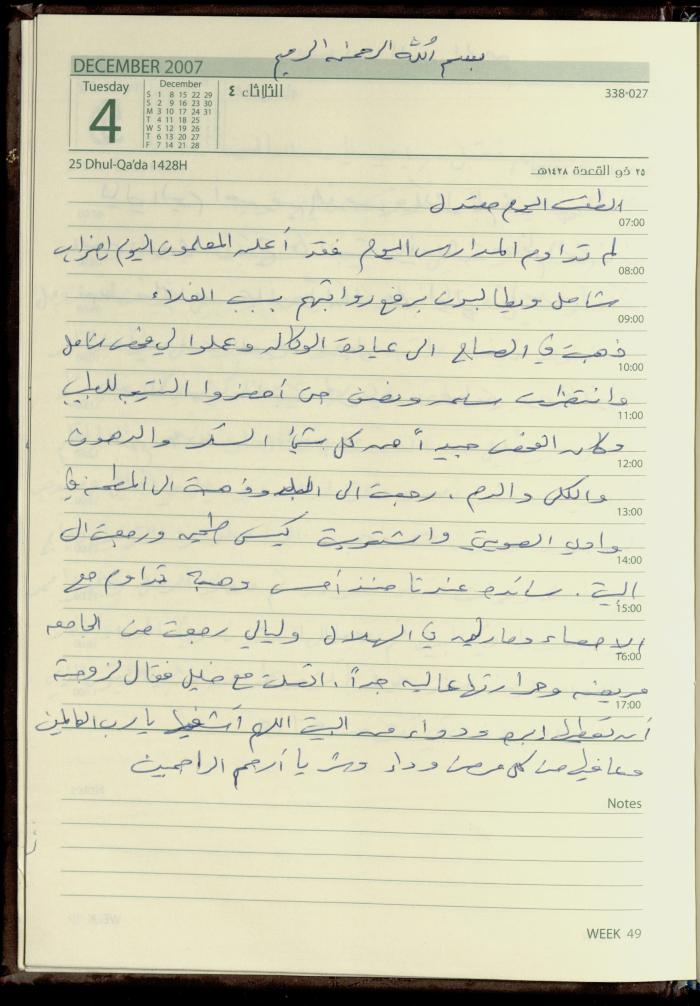 بسم الله الرحمن الرحيم
DECEMBER 2007
Tuesday
4
December
S 1 8 15 22 29
S 2 9 16 23 30
M 3 10 17 24 31
T 4 11 18 25
W 5 12 19 26
T 6 13 20 27
F 7 14 21 28
الثلاثاء ٤
338-027
25 Dhul-Qa'da 1428H
٢٥ ذو القعدة ١٤٢٨هـ
الطقس اليوم معتدل
07:00
لم تداوم المدارس اليوم فقد أعلن المعلمون اليوم إضراب
08:00
شامل ويطالبون برفع رواتبهم بسبب الغلاء
09:00
ذهبت في الصباح الى عيادة الوكاله وعملوا لي فحص شامل
10:00
وانتظرت ساعه ونصف حتى أحضروا النتيجه للطبيب
11:00
وكان الفحص جيداً من كل شيء السكر والدهون
12:00
والكلى والدم . رجعت الى البلد وذهبت الى المطحنه في
13:00
وادي واشتريت كيس طحين ورجعت الى
14:00
البيت . سائده عندنا منذ أمس وهبة تداوم مع
15:00
الاحصاء في الهلال وليالي رجعت من الجامعه
16:00
مريضه وحرارتها عاليه جداً . اتصلت مع خليل فقال لزوجته
17:00
أن تعطيها ابره ودواء من البيت اللهم أشفيها يا رب العالمين
وعافيها من كل مرض وداء وشر يا أرحم الراحمين
Notes
WEEK 49